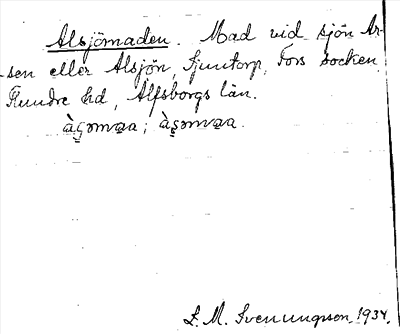 Alsjömaden. Mad vid sjön Ar-
sen eller Alsjön, Sjuntorp, Fors socken
Flundre hd, Älfsborgs län.
S. M. Svenungsson. 1934.